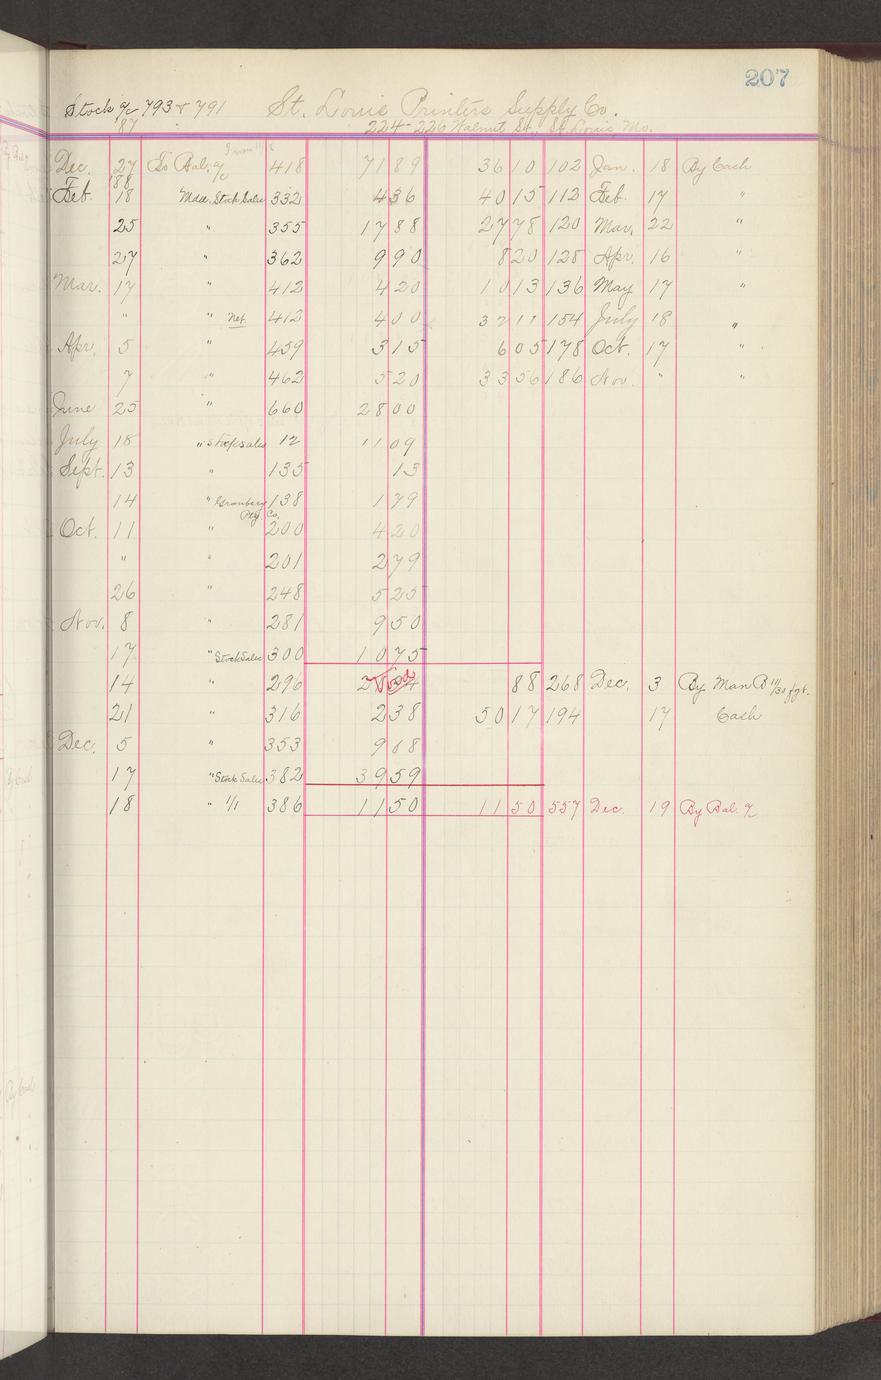 207
Stock a/c 793 & 791 St. Louis Printers Supply Co.
87 224-226 Walnut St. St. Louis Mo.
Dec. 27 To Bal. a/c 418 71 89 36 10 102 Jan. 18 By Cash
'88
Feb. 18 Mdse. Stock Sales 332 4 36 40 15 112 Feb. 17 "
25 " 355 17 88 27 78 120 Mar. 22 "
27 " 362 9 90 8 20 128 Apr. 16 "
Mar. 17 " 412 4 20 10 13 136 May 17 "
" " Net. 412 4 00 32 11 154 July 18 "
Apr. 5 " 459 3 15 6 05 178 Oct. 17 "
7 " 462 5 20 33 56 186 Nov. " "
June 25 " 660 28 00
July 18 " Stock sales 12 11 09
Sept. 13 " 135 13
14 " Granbery Ptg. Co. 138 1 79
Oct. 11 " 200 4 20
" " 201 2 79
26 " 248 5 25
Nov. 8 " 281 9 50
17 " Stock Sales 300 10 75
14 " 296 Void 88 268 Dec. 3 By Man B 11/30 fgt.
21 " 316 2 38 50 17 194 17 Cash
Dec. 5 " 353 9 68
17 " Stock Sales 382 39 59
18 " 1/1 386 11 50 11 50 557 Dec. 19 By Bal. a/c